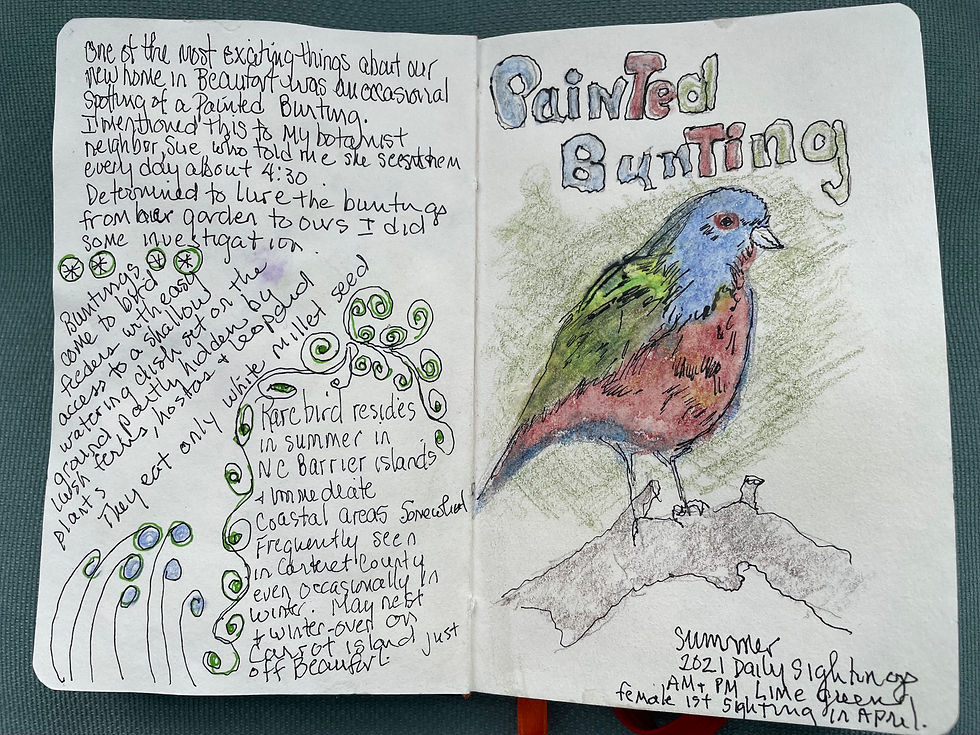 One of the most exciting things about our
new home in Beaufort was an occasional
spotting of a Painted Bunting.
I mentioned this to my botanist
neighbor, Sue who told me she sees them
every day about 4:30.
Determined to llure the buntings
from her garden to ours I did
some investigation.
Buntings
come to bird
feeders with easy
access to a shallow
watering dish set on the
ground partly hidden by
lush ferns, hostas + leopard
plants
They eat only white millet seed
Rare bird resides
in summer in
NC Barrier islands
+ immediate
Coastal areas Somewhat
Frequently seen
in Carteret County
even occasionally in
winter. May nest
+ winter-over on
Carrot island just
off Beaufort.
PainTed
BunTing
Summer
2021 Daily Sightings
AM + PM Lime green
female 1st Sighting in April.